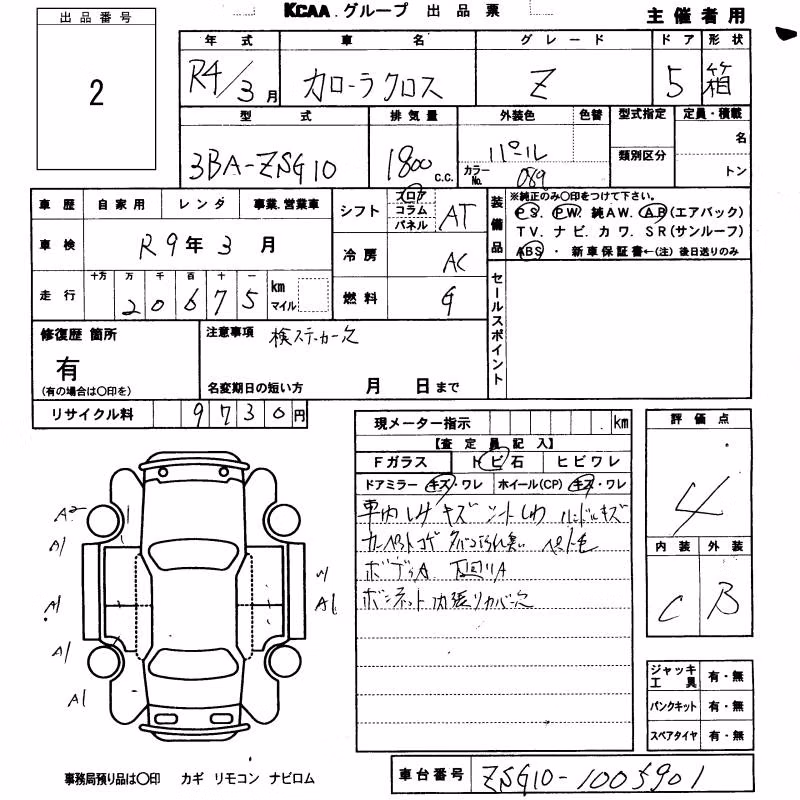 KCAA グループ 出品票
主催者用
出品番号
2
年式 車名 グレード ドア 形状
R4/3月 カローラクロス Z 5 箱
型式 排気量 外装色 色替 型式指定 定員・積載
3BA-ZSG10 1800 c.c. パール 類別区分 名
カラーNo. 089 トン
車歴 自家用 レンタ 事業.営業車
車検 R9年3月
走行 十万 万 千 百 十 一 km マイル
20675
シフト フロア コラム パネル AT
冷房 AC
燃料 G
装備品
※純正のみ○印をつけて下さい。
PS. PW. 純AW. AB(エアバック)
TV. ナビ. カワ. SR(サンルーフ)
ABS ・ 新車保証書←(注)後日送りのみ
セールスポイント
修復歴 箇所
有
(有の場合は○印を)
注意事項 検ステッカー欠
名変期日の短い方 月 日まで
リサイクル料 9730円
現メーター指示 . km
【査定員記入】
Fガラス トビ石 ヒビワレ
ドアミラー キズ・ワレ ホイール(CP) キズ・ワレ
車内 キズ シートしわ ハンドルキズ
カーペットコゲ タバコ臭い ペット毛
ボディA 下回りA
ボンネット内張りカバー欠
評価点
4
内装 外装
C B
A2
A1
A1
A1
A1
A1
ジャッキ工具 有・無
パンクキット 有・無
スペアタイヤ 有・無
事務局預り品は○印 カギ リモコン ナビロム
車台番号 ZSG10-1005901